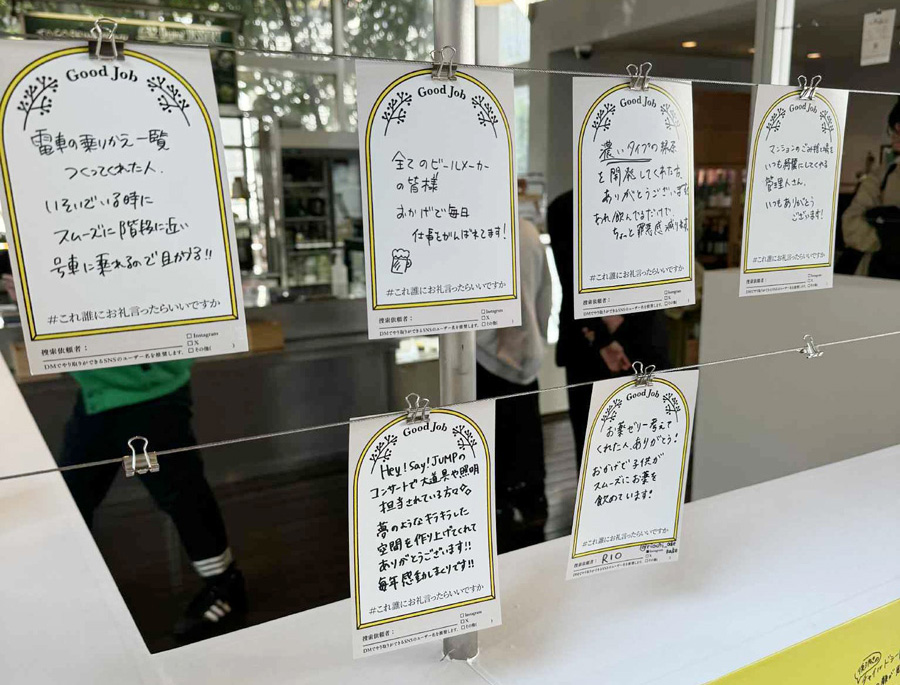 Good Job
電車の乗りかえ一覧
つくってくれた人。
いそいでいる時に
スムーズに階段に近い
号車に乗れるので助かる!!
#これ誰にお礼言ったらいいですか
捜索依頼者:
□Instagram
□X
□その他( )
DMでやり取りができるSNSのユーザー名を推奨します。
Good Job
全てのビールメーカー
の皆様
おかげで毎日
仕事をがんばれてます!
#これ誰にお礼言ったらいいですか
捜索依頼者:
□Instagram
□X
□その他( )
DMでやり取りができるSNSのユーザー名を推奨します。
Good Job
濃いタイプの緑茶
を開発してくれた方、
ありがとうございます
あれ飲んでるだけで、
ちょっと罪悪感減ります
#これ誰にお礼言ったらいいですか
捜索依頼者:
□Instagram
□X
□その他( )
DMでやり取りができるSNSのユーザー名を推奨します。
Good Job
マンションのごみ捨て場を
いつも綺麗にしてくれる
管理人さん。
いつもありがとう
ございます!
#これ誰にお礼言ったらいいですか
捜索依頼者:
□Instagram
□X
□その他( )
DMでやり取りができるSNSのユーザー名を推奨します。
Good Job
Hey!Say!JUMPの
コンサートで大道具や照明
担当されている方々
夢のようなキラキラした
空間を作り上げてくれて
ありがとうございます!!
毎年感動しまくりです!!
#これ誰にお礼言ったらいいですか
捜索依頼者:
□Instagram
□X
□その他( )
DMでやり取りができるSNSのユーザー名を推奨します。
Good Job
お薬ゼリー考えて
くれた人、ありがとう!
おかげで子供が
スムーズにお薬を
飲めています!
#これ誰にお礼言ったらいいですか
捜索依頼者: RIO
Instagram
□X
□その他( )
DMでやり取りができるSNSのユーザー名を推奨します。